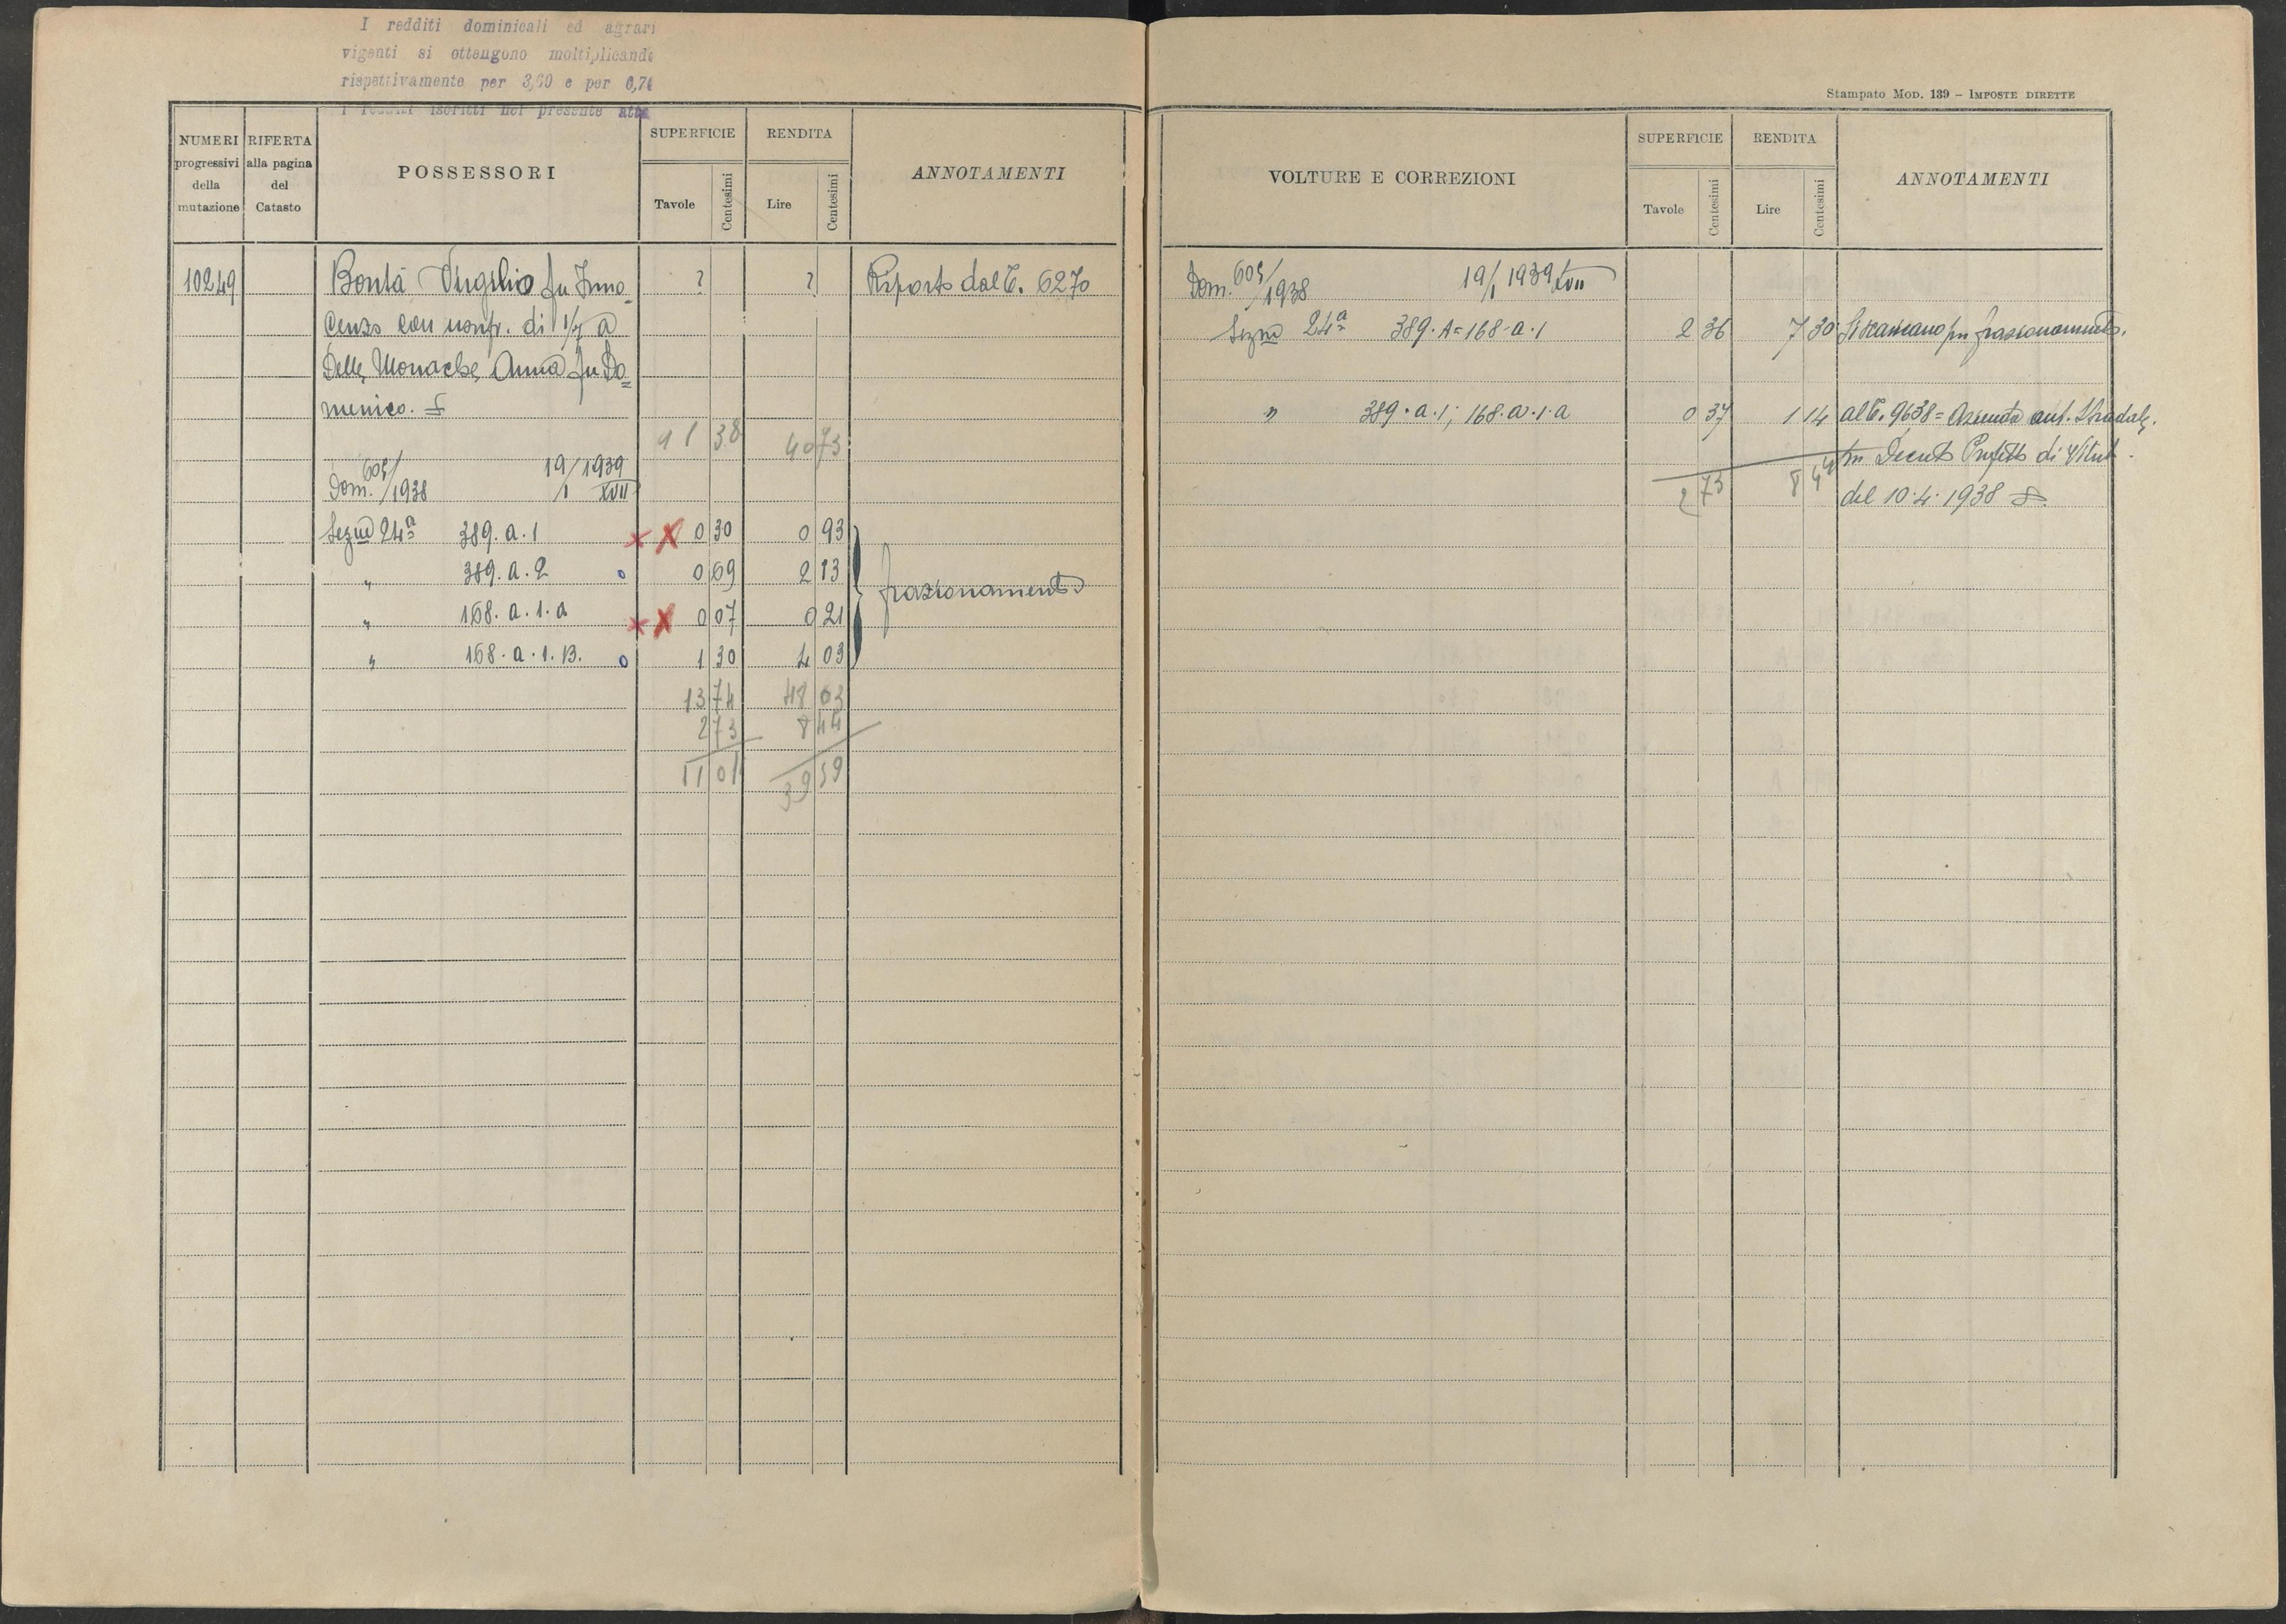 I redditi dominicali ed agrari
vigenti si ottengono moltiplicando
rispettivamente per 3,60 e per 6,74
i redditi iscritti nel presente atto
Stampato MOD. 139 – IMPOSTE DIRETTE
NUMERI progressivi della mutazione
RIFERTA alla pagina del Catasto
POSSESSORI
SUPERFICIE Tavole Centesimi
RENDITA Lire Centesimi
ANNOTAMENTI
10249 Bontà Virgilio fu Inno- ? ? Riporto dal C. 6270
cenzo con usufr. di 1/7 a
Delle Monache Anna fu Do=
menico.
11 38 40 73
Dom. 605/1938 19/1 1939 XVII
Sezne 24ª 389.a.1 0 30 0 93
" 389.a.2 0 69 2 13 frazionamento
" 168.a.1.a 0 07 0 21
" 168.a.1.B. 1 30 4 03
13 74 48 03
2 73 8 44
11 01 39 59
VOLTURE E CORREZIONI
SUPERFICIE Tavole Centesimi
RENDITA Lire Centesimi
ANNOTAMENTI
Dom. 605/1938 19/1 1939 XVII
Sezne 24ª 389.A=168-a.1 2 36 7 30 Si scaricano per frazionamento.
" 389.a.1; 168.a.1.a 0 37 1 14 al C. 9638= Azienda aut. Stradale,
2 73 8 44 per Decreto Prefetto di Viterb.
del 10.4.1938